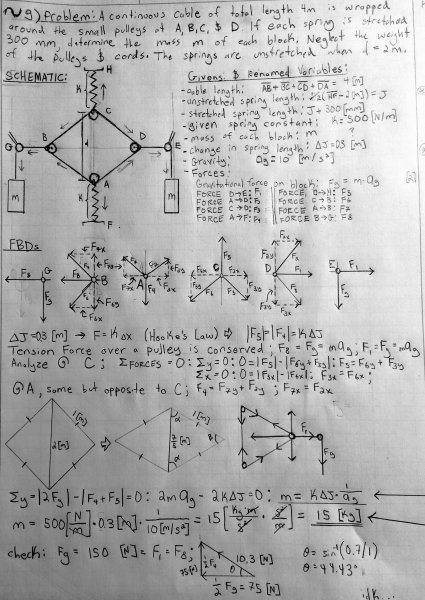 9) Problem: A continuous cable of total length 4m is wrapped
around the small pulleys at A, B, C, & D. If each spring is stretched
300 mm, determine the mass m of each block. Neglect the weight
of the pulleys & cords. The springs are unstretched when d = 2m.
SCHEMATIC:
H
K
C
G
B
d
D
E
A
K
F
m
m
Givens & Renamed Variables:
- cable length: AB + BC + CD + DA = 4 [m]
- unstretched spring length:
- stretched spring length: J + 300 [mm]
- given spring constant: K = 500 [N/m]
- mass of each block: m ?
- change in spring length: ΔJ = 0.3 [m]
- Gravity: ag = 10 [m/s²]
- Forces:
Gravitational force on block: Fg = m·ag
FORCE D→E: F1
FORCE A→D: F2
FORCE C→D: F3
FORCE A→F: F4
FORCE C→H: F5
FORCE C→B: F6
FORCE A→B: F7
FORCE B→G: F8
FBDs
F8 G Fg
B
A
C
D
E F1 Fg
ΔJ = 0.3 [m] → F = KΔx (Hooke's Law) ⇒ |F5| = |F4| = KΔJ
Tension Force over a pulley is conserved; F8 = Fg = mag; F1 = Fg = mag
Analyze @ C; ΣFORCES = 0: Σy = 0: 0 = |F5| - |F6y + F3y|; F5 = F6y + F3y
Σx = 0: 0 = |F3x| - |F6x|; F3x = F6x;
@A, same but opposite to C; F4 = F7y + F2y; F7x = F2x
1 [m]
2 [m]
⇒
α
1 [m]
α
B
F1
Fg
Σy = |2Fg| - |F4 + F5| = 0: 2mag - 2KΔJ = 0: m = KΔJ · 1/ag
m = 500 [N/m] · 0.3 [m] · 1/10 [m/s²] = 15 = 15 [kg]
check: Fg = 150 [N] = F1 = F8;
75 [N]
½ F4
10,3 [N]
θ
½ Fg = 75 [N]
θ = sin⁻¹(0.7/1)
θ = 44.43°
idk...